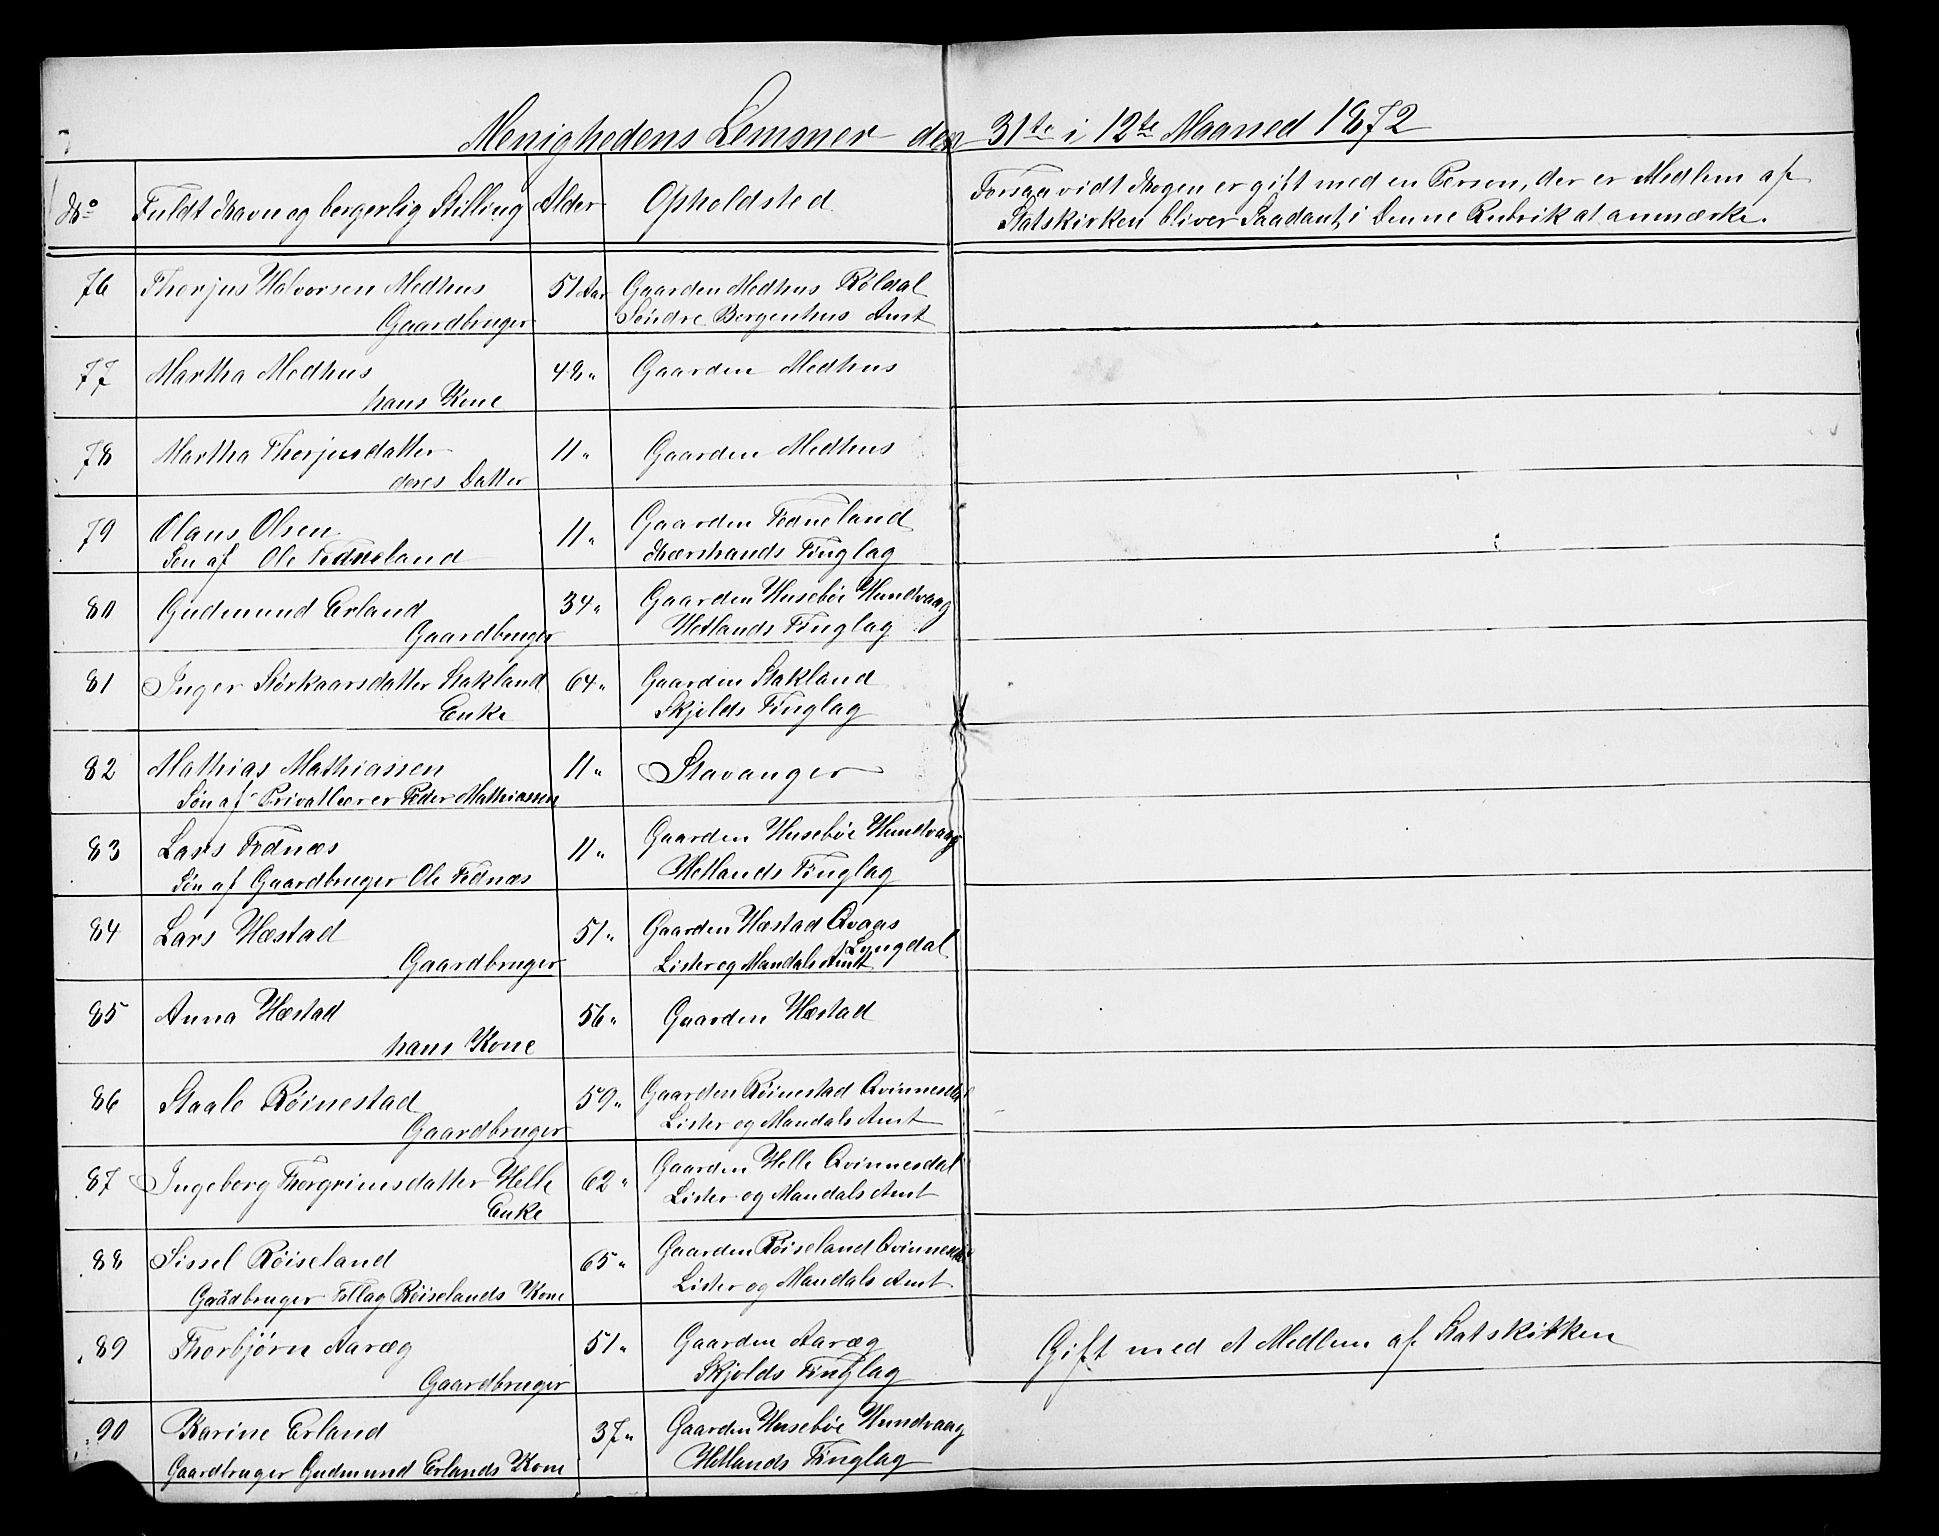 Menighedens Lemmer den 31te i 12te Maaned 1872
No Fuldt Navn og borgerlig Stilling Alder Opholdsted Forsaavidt Nogen er gift med en Person, der er Medlem af
Statskirken bliver Saadant i Denne Rubrik at anmærke.
76 Thorjus Halvorsen Medhus 51 Aar Gaarden Medhus Röldal
Gaardbruger Söndre Bergenhus Amt
77 Martha Medhus 48 " Gaarden Medhus
hans Kone
78 Martha Thorjusdatter 11 " Gaarden Medhus
deres Datter
79 Olaus Olsen 11 " Gaarden Tedneland
Søn af Ole Tedneland Nærstrands Tinglag
80 Gudmund Erland 34 " Gaarden Husebøe Hundvaag
Gaardbruger Hetlands Tinglag
81 Inger Størkaarsdatter Stakland 64 " Gaarden Stakland
Enke Skjolds Tinglag
82 Mathias Mathiassen 11 " Stavanger
Søn af Privatlærer Peder Mathiassen
83 Lars Tednæs 11 " Gaarden Husebøe Hundvaag
Søn af Gaardbruger Ole Tednæs Hetlands Tinglag
84 Lars Hæstad 51 " Gaarden Hæstad Qvaas
Lyngdal
Gaardbruger Lister og Mandals Amt
85 Anna Hæstad 56 " Gaarden Hæstad
hans Kone
86 Staale Röinestad 59 " Gaarden Röinestad Qvinnesdal
Gaardbruger Lister og Mandals Amt
87 Ingeborg Thorgrimsdatter Helle 62 " Gaarden Helle Qvinnesdal
Enke Lister og Mandals Amt
88 Sissel Röiseland 65 " Gaarden Röiseland Qvinnesdal
Gaadbruger Tollag Röiselands Kone Lister og Mandals Amt
89 Thorbjørn Aaræg 51 " Gaarden Aaræg Gift med et Medlem af Statskirken
Gaardbruger Skjolds Tinglag
90 Karine Erland 37 " Gaarden Husebøe Hundvaag
Gaardbruger Gudmund Erlands Kone Hetlands Tinglag